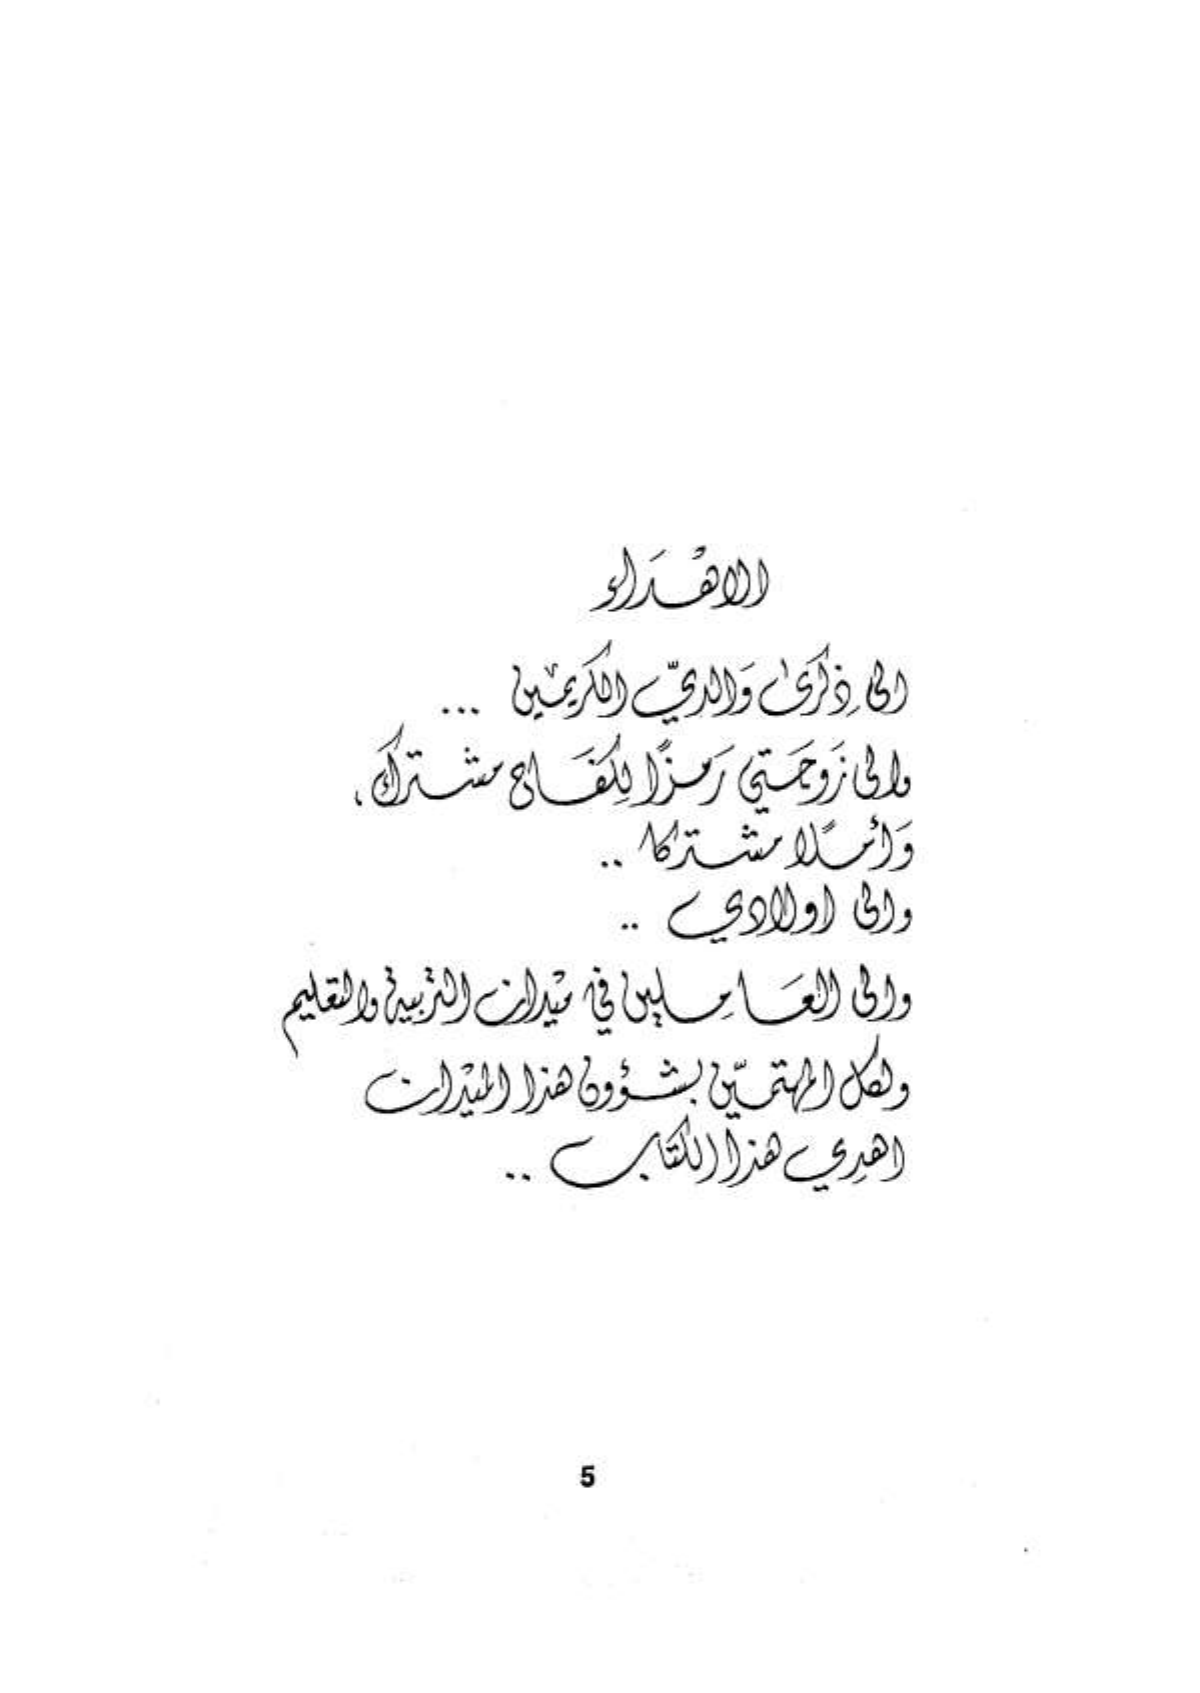 الاهْدَاء
الى ذِكرىٰ وَالديّ الكريمْين ...
والى زَوجَتي رَمزًا لِكفَاح مشترَك ،
وَأملًا مشتركا ..
والى اولادي ..
والى العَامِلين في ميْدان التربية والتعليم
ولكل المهتمّين بشؤون هذا الميْدان
اهدِي هذا الكتاب ..
5